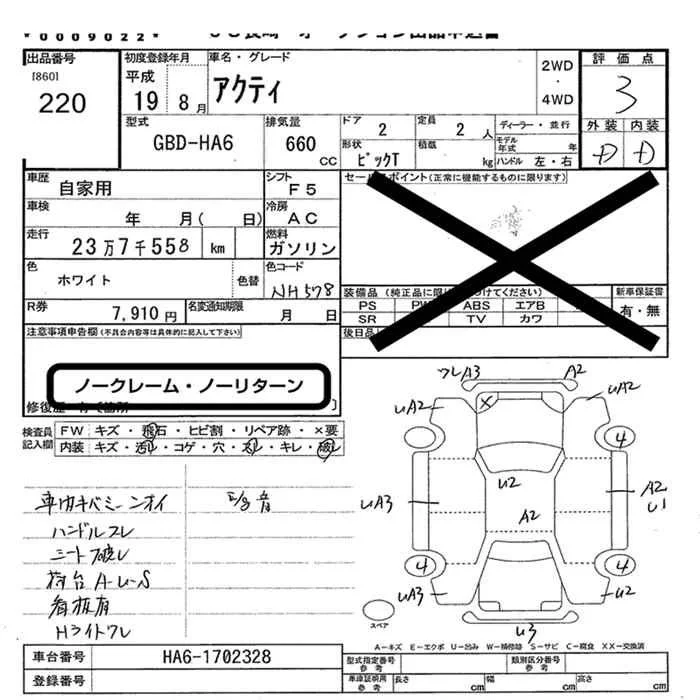 *0009022*
出品番号
[860]
220
初度登録年月
平成
19 8月
車名・グレード
アクティ
2WD
・
4WD
評価点
3
外装 内装
D D
型式
GBD-HA6
排気量
660
CC
ドア
2
定員
2人
ディーラー・並行
モデル年式 年
形状
ピックT
積載
kg
ハンドル 左・右
車歴
自家用
シフト
F5
セールスポイント(正常に機能するものに限ります)
車検
年 月( 日)
冷房
AC
走行
23万7千558 km
燃料
ガソリン
色
ホワイト
色替
色コード
NH578
R券
7,910円
名変通知期限
月 日
装備品(純正品に限り
つけてください)
PS PW ABS エアB
SR TV カワ
新車保証書
有・無
後日品
注意事項申告欄(不具合内容等は具体的に記入して下さい)
ノークレーム・ノーリターン
修復歴
検査員記入欄
FW キズ・飛石・ヒビ割・リペア跡・×要
内装 キズ・汚レ・コゲ・穴・スレ・キレ・破レ
車内キバミ ニオイ
ハンドルスレ
シート破レ
荷台A-U-S
看板有
Hライトワレ
音
ワレA3 A2
UA2 × UA2
4
U2
UA3 A2 A2
U1
4 4
UA3 U2
U3
スペア
A-キズ E-エクボ U-凹み W-補修跡 S-サビ C-腐食 XX-交換済
車台番号
HA6-1702328
登録番号
型式指定番号
参考
類別区分番号
参考
車庫証明用
参考
長さ cm 幅 cm 高さ cm